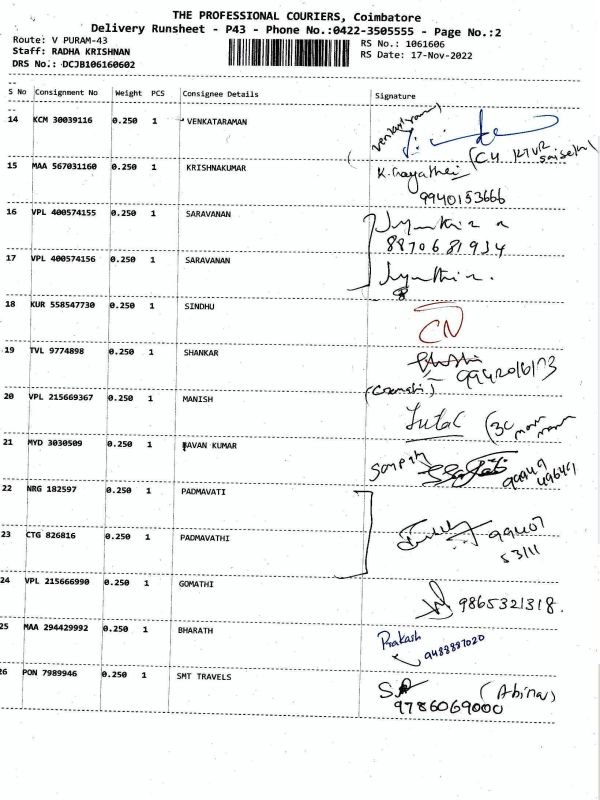 THE PROFESSIONAL COURIERS, Coimbatore
Delivery Runsheet - P43 - Phone No.:0422-3505555 - Page No.:2
Route: V PURAM-43
RS No.: 1061606
Staff: RADHA KRISHNAN
RS Date: 17-Nov-2022
DRS No.: DCJB106160602
S No Consignment No Weight PCS Consignee Details Signature
14 KCM 30039116 0.250 1 VENKATARAMAN
15 MAA 567031160 0.250 1 KRISHNAKUMAR K. Gayathri
9940153666
16 VPL 400574155 0.250 1 SARAVANAN
8870681934
17 VPL 400574156 0.250 1 SARAVANAN
18 KUR 558547730 0.250 1 SINDHU CN
19 TVL 9774898 0.250 1 SHANKAR
20 VPL 215669367 0.250 1 MANISH
21 MYD 3030509 0.250 1 PAVAN KUMAR
99949
49649
22 NRG 182597 0.250 1 PADMAVATI
99407
53111
23 CTG 826816 0.250 1 PADMAVATHI
24 VPL 215666990 0.250 1 GOMATHI 9865321318.
25 MAA 294429992 0.250 1 BHARATH Prakash
9488887020
26 PON 7989946 0.250 1 SMT TRAVELS
9786069000